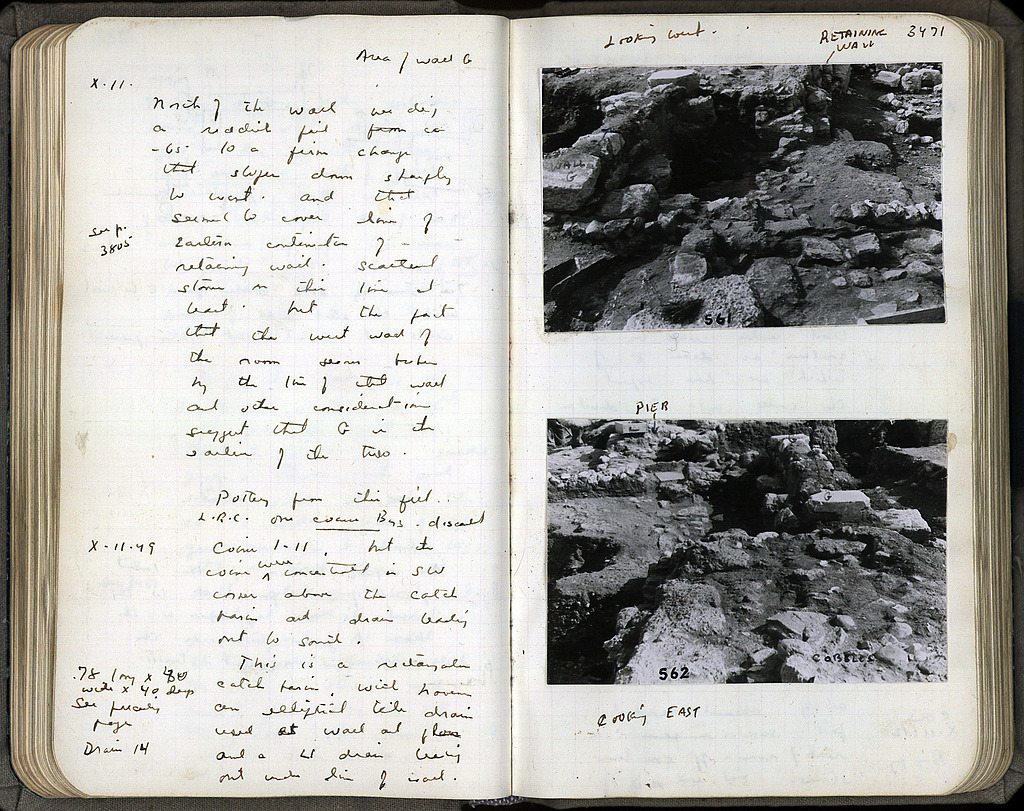 Area of wall G
X.11.
North of the wall we dig
a reddish fill from ca
-65 to a firm change
that slopes down sharply
to west. and that
seemed to cover line of
Eastern continuation of -
retaining wall. scattered
see p.
3805
stones on this line at
least. but the fact
that the west wall of
the room seems broken
by the line of that wall
and other considerations
suggest that G is the
earlier of the two.
Pottery from this fill..
L.R.C. one coarse Byz. discard
X.11.49
Coins 1-11, but the
coins were concentrated in SW
corner above the catch
basin and drain leading
out to south.
This is a rectangular
.78 long x
wide x 40 deep
catch basin, with
see
page
an elliptical tile drain
used as wall at floor
Drain 14
and a drain leading
out under line of wall.
Looking west.
RETAINING
WALL
3471
WALL
G
561
PIER
G
COBBLES
562
LOOKING EAST